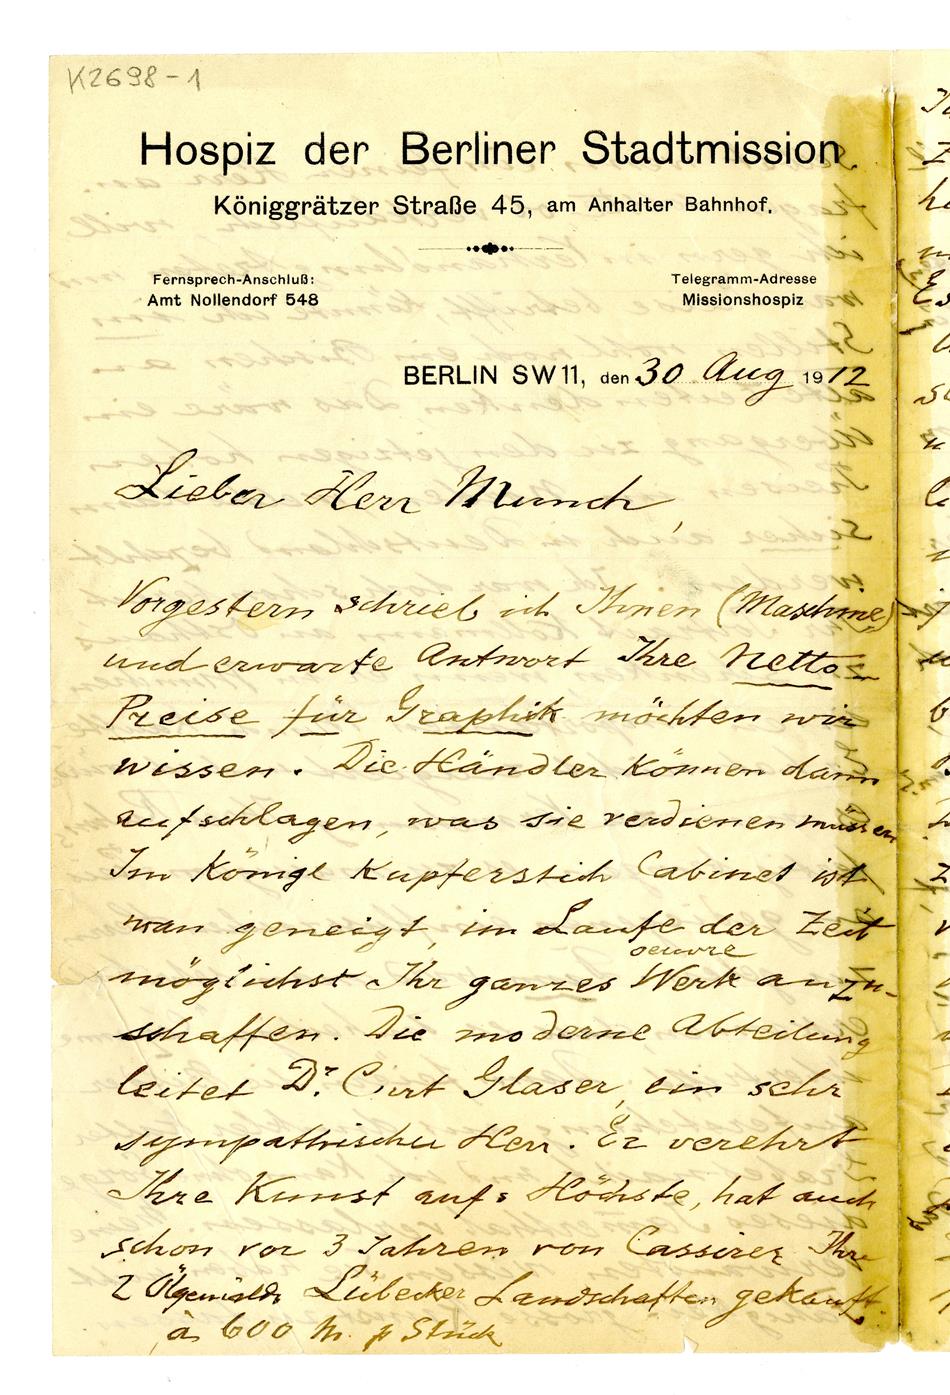 K2698-1
Hospiz der Berliner Stadtmission
Königgrätzer Straße 45, am Anhalter Bahnhof.
Fernsprech-Anschluß:
Amt Nollendorf 548
Telegramm-Adresse
Missionshospiz
BERLIN SW 11, den 30 Aug 1912
Lieber Herr Munch,
Vorgestern schrieb ich Ihnen (Maschine)
und erwarte Antwort Ihre Netto-
Preise für Graphik möchten wir
wissen. Die Händler können dann
aufschlagen, was sie verdienen müssen
Im Königl Kupferstich Cabinet ist
man geneigt, im Laufe der Zeit
oeuvre
möglichst Ihr ganzes Werk anzu-
schaffen. Die moderne Abteilung
leitet Dr. Curt Glaser, ein sehr
sympathischer Herr. Er verehrt
Ihre Kunst aufs Höchste, hat auch
schon vor 3 Jahren von Cassirer Ihre
2 Ölgemälde Lübecker Landschaften gekauft.
à 600 M. p Stück